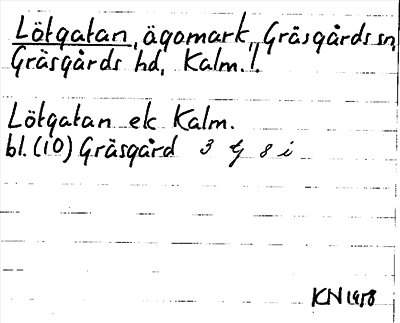 Lötgatan, ägomark, Gräsgårds sn,
Gräsgårds hd, Kalm. l.
Lötgatan ek Kalm.
bl. (10) Gräsgård 3 G 8 i
KN 1958